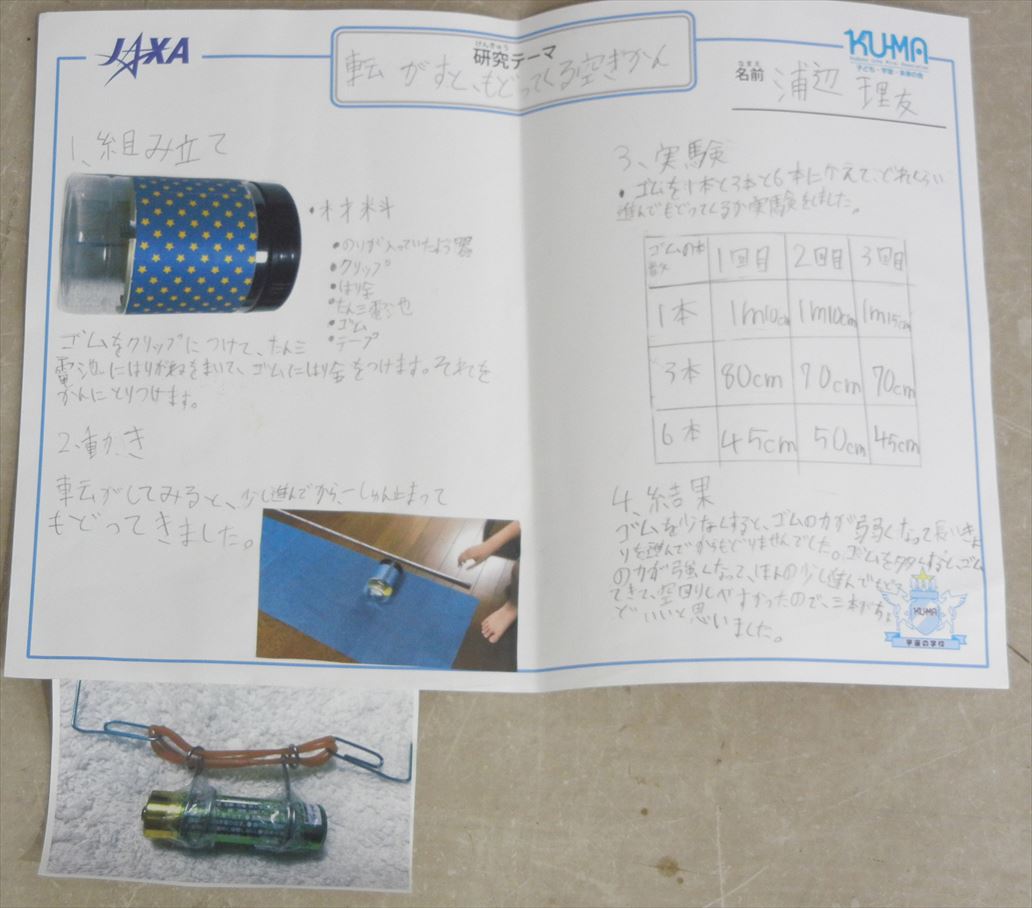 JAXA
けんきゅう
研究テーマ
転がすと、もどってくる空きかん
KU-MA
子ども・宇宙・未来の会
なまえ
名前 浦辺 理友
1、組み立て
・材料
・のりが入っていたよう器
・クリップ
・はり金
・たん三電池
・ゴム
・テープ
ゴムをクリップにつけて、たん三
電池にはりがねをまいて、ゴムにはり金をつけます。それを
かんにとりつけます。
2、動き
転がしてみると、少し進んでから、一しゅん止まって
もどってきました。
3、実験
・ゴムを1本と3本と6本にかえて、どれくらい
進んでもどってくるか実験をしました。
ゴムの本数 1回目 2回目 3回目
1本 1m10cm 1m10cm 1m15cm
3本 80cm 70cm 70cm
6本 45cm 50cm 45cm
4、結果
ゴムを少なくすると、ゴムの力が弱くなって長いきょ
りを進んでからもどりませんでした。ゴムを多くすると、ゴム
の力が強くなって、ほんの少し進んでもどっ
てきて、空回りしやすかったので、三本がちょ
どいいと思いました。
KU-MA
宇宙の学校